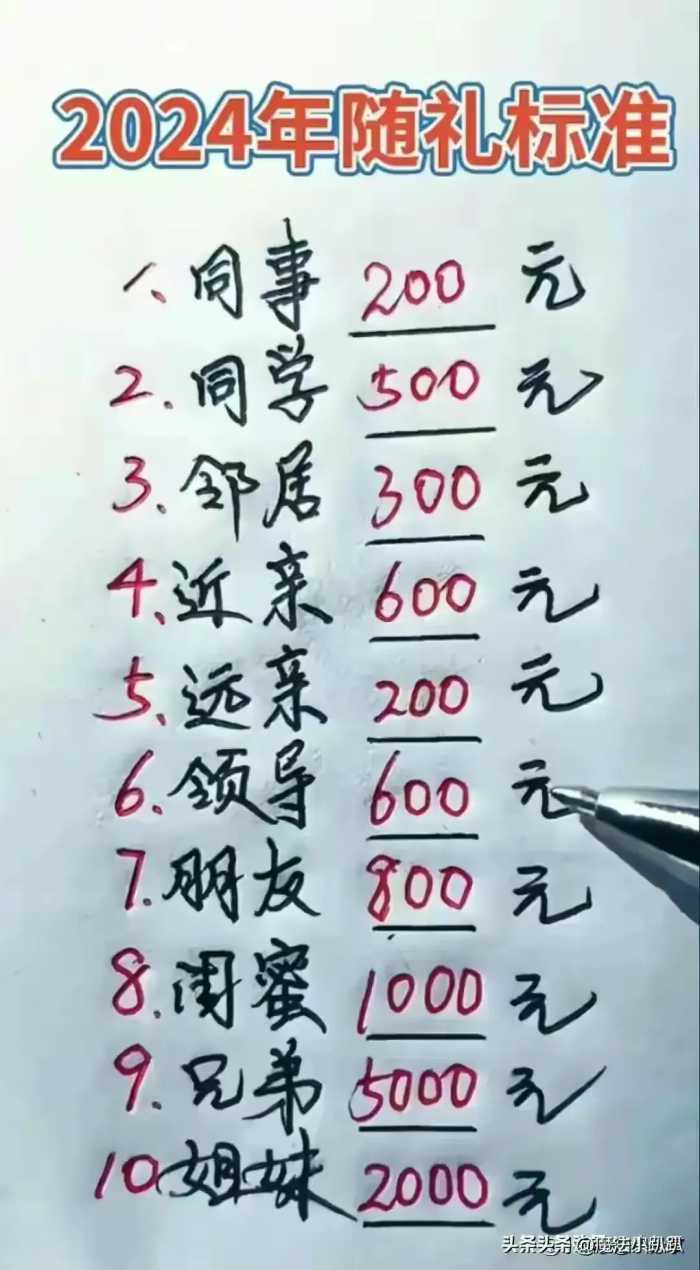 2024年随礼标准
1、同事 200 元
2.同学 500 元
3.邻居 300 元
4、近亲 600 元
5、远亲 200 元
6.领导 600 元
7.朋友 800 元
8.闺蜜 1000 元
9.兄弟 5000 元
10姐妹 2000 元
头条头条@魔法小趴趴